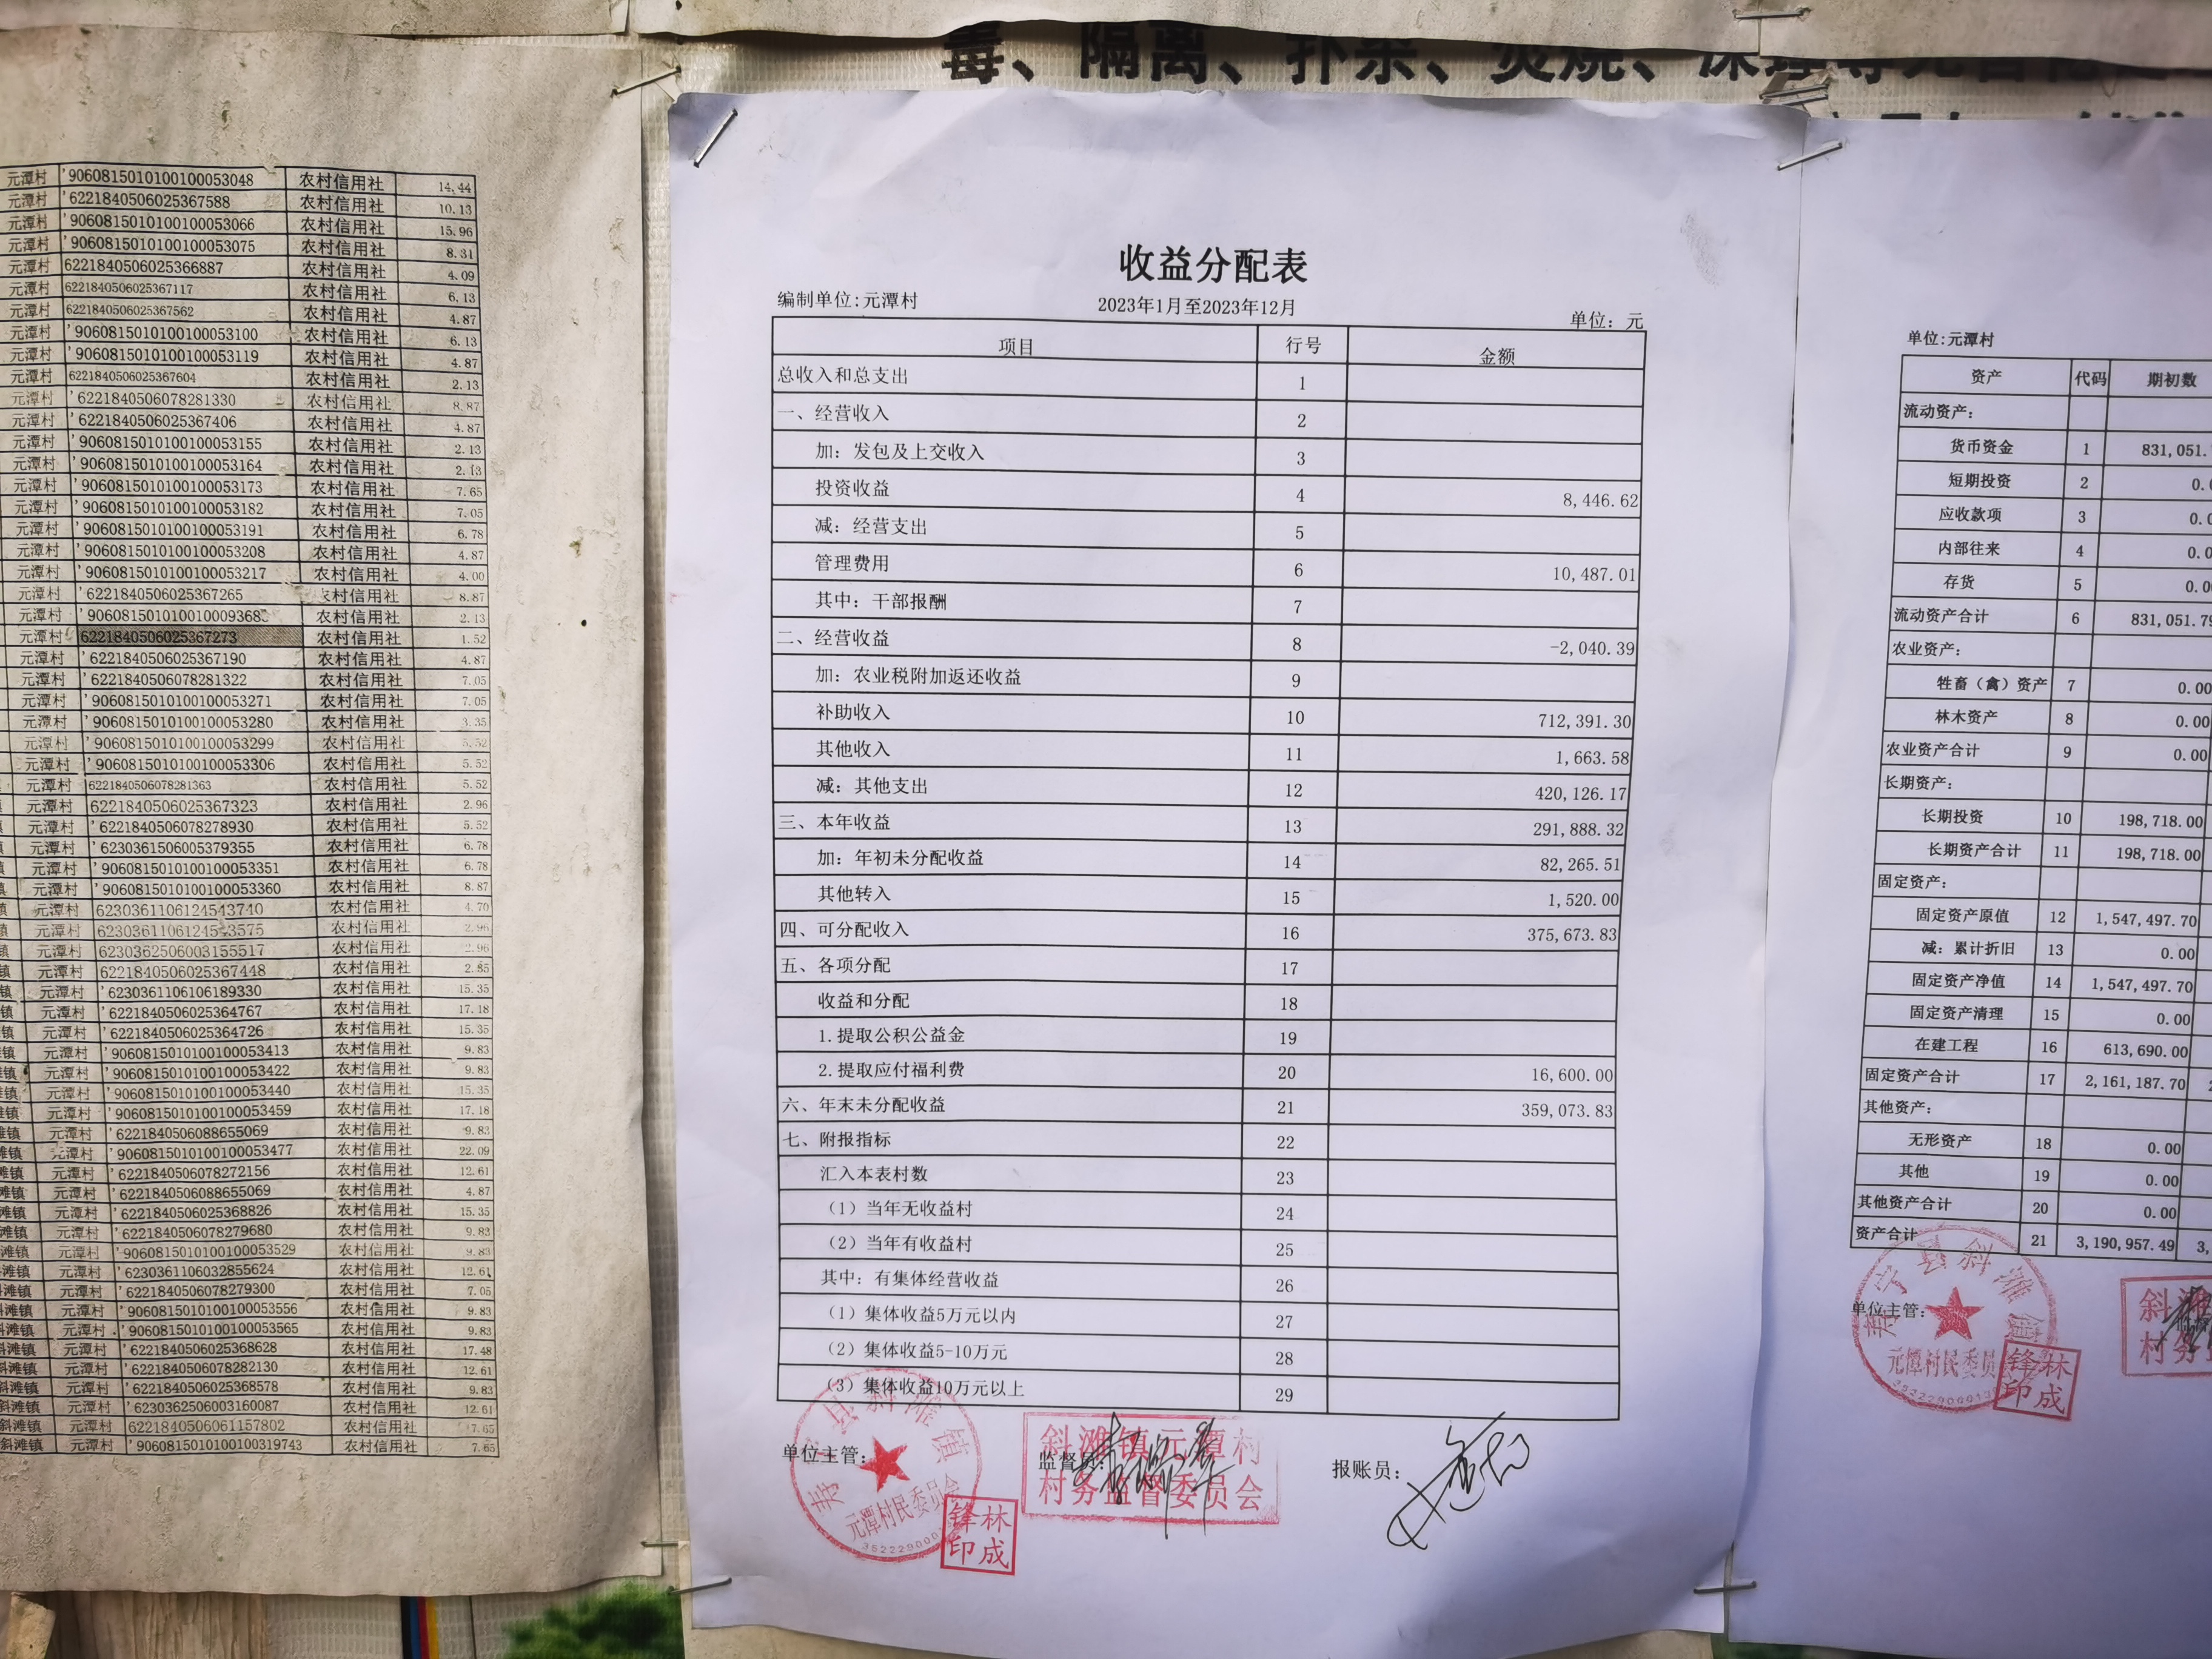 毒、隔离、扑杀、焚烧、
元潭村 '9060815010100100053048 农村信用社 14.44
元潭村 '6221840506025367588 农村信用社 10.13
元潭村 '9060815010100100053066 农村信用社 15.96
元潭村 '9060815010100100053075 农村信用社 8.31
元潭村 6221840506025366887 农村信用社 4.09
元潭村 6221840506025367117 农村信用社 6.13
元潭村 6221840506025367562 农村信用社 4.87
元潭村 '9060815010100100053100 农村信用社 6.13
元潭村 '9060815010100100053119 农村信用社 4.87
元潭村 6221840506025367604 农村信用社 2.13
元潭村 '6221840506078281330 农村信用社 8.87
元潭村 '6221840506025367406 农村信用社 4.87
元潭村 '9060815010100100053155 农村信用社 2.13
元潭村 '9060815010100100053164 农村信用社 2.13
元潭村 '9060815010100100053173 农村信用社 7.65
元潭村 '9060815010100100053182 农村信用社 7.05
元潭村 '9060815010100100053191 农村信用社 6.78
元潭村 '9060815010100100053208 农村信用社 4.87
元潭村 '9060815010100100053217 农村信用社 4.00
元潭村 '6221840506025367265 农村信用社 8.87
元潭村 农村信用社 2.13
元潭村 6221840506025367273 农村信用社 1.52
元潭村 '6221840506025367190 农村信用社 4.87
元潭村 '6221840506078281322 农村信用社 7.05
元潭村 '9060815010100100053271 农村信用社 7.05
元潭村 '9060815010100100053280 农村信用社 3.35
元潭村 '9060815010100100053299 农村信用社 5.52
元潭村 '9060815010100100053306 农村信用社 5.52
元潭村 6221840506078281363 农村信用社 5.52
元潭村 6221840506025367323 农村信用社 2.96
元潭村 '6221840506078278930 农村信用社 5.52
元潭村 '6230361506005379355 农村信用社 6.78
元潭村 '9060815010100100053351 农村信用社 6.78
元潭村 '9060815010100100053360 农村信用社 8.87
镇 元潭村 6230361106124543740 农村信用社 4.70
镇 元潭村 6230361106124543575 农村信用社 2.96
镇 元潭村 6230362506003155517 农村信用社 2.96
镇 元潭村 6221840506025367448 农村信用社 2.85
镇 元潭村 '6230361106106189330 农村信用社 15.35
镇 元潭村 '6221840506025364767 农村信用社 17.18
镇 元潭村 '6221840506025364726 农村信用社 15.35
镇 元潭村 '9060815010100100053413 农村信用社 9.83
滩镇 元潭村 '9060815010100100053422 农村信用社 9.83
滩镇 元潭村 '9060815010100100053440 农村信用社 15.35
滩镇 元潭村 '9060815010100100053459 农村信用社 17.18
滩镇 元潭村 '6221840506088655069 农村信用社 9.83
滩镇 元潭村 '9060815010100100053477 农村信用社 22.09
滩镇 元潭村 '6221840506078272156 农村信用社 12.61
滩镇 元潭村 '6221840506088655069 农村信用社 4.87
滩镇 元潭村 '6221840506025368826 农村信用社 15.35
滩镇 元潭村 '6221840506078279680 农村信用社 9.83
滩镇 元潭村 '9060815010100100053529 农村信用社 9.83
滩镇 元潭村 '6230361106032855624 农村信用社 12.61
滩镇 元潭村 '6221840506078279300 农村信用社 7.05
斜滩镇 元潭村 '9060815010100100053556 农村信用社 9.83
斜滩镇 元潭村 '9060815010100100053565 农村信用社 9.83
斜滩镇 元潭村 '6221840506025368628 农村信用社 17.48
斜滩镇 元潭村 '6221840506078282130 农村信用社 12.61
斜滩镇 元潭村 '6221840506025368578 农村信用社 9.83
斜滩镇 元潭村 '6230362506003160087 农村信用社 12.61
斜滩镇 元潭村 6221840506061157802 农村信用社 7.65
斜滩镇 元潭村 '9060815010100100319743 农村信用社 7.65
收益分配表
编制单位:元潭村 2023年1月至2023年12月 单位：元
项目 行号 金额
总收入和总支出 1
一、经营收入 2
加：发包及上交收入 3
投资收益 4 8,446.62
减：经营支出 5
管理费用 6 10,487.01
其中：干部报酬 7
二、经营收益 8 -2,040.39
加：农业税附加返还收益 9
补助收入 10 712,391.30
其他收入 11 1,663.58
减：其他支出 12 420,126.17
三、本年收益 13 291,888.32
加：年初未分配收益 14 82,265.51
其他转入 15 1,520.00
四、可分配收入 16 375,673.83
五、各项分配 17
收益和分配 18
1.提取公积公益金 19
2.提取应付福利费 20 16,600.00
六、年末未分配收益 21 359,073.83
七、附报指标 22
汇入本表村数 23
（1）当年无收益村 24
（2）当年有收益村 25
其中：有集体经营收益 26
（1）集体收益5万元以内 27
（2）集体收益5-10万元 28
（3）集体收益10万元以上 29
单位主管： 监督员： 报账员：
寿宁县斜滩镇
元潭村民委员会
斜滩镇元潭村
村务监督委员会
锋林
印成
单位:元潭村
资产 代码 期初数
流动资产：
货币资金 1 831,051.
短期投资 2 0.
应收款项 3 0.
内部往来 4 0.0
存货 5 0.0
流动资产合计 6 831,051.79
农业资产：
牲畜（禽）资产 7 0.00
林木资产 8 0.00
农业资产合计 9 0.00
长期资产：
长期投资 10 198,718.00
长期资产合计 11 198,718.00
固定资产：
固定资产原值 12 1,547,497.70
减：累计折旧 13 0.00
固定资产净值 14 1,547,497.70
固定资产清理 15 0.00
在建工程 16 613,690.00
固定资产合计 17 2,161,187.70
其他资产：
无形资产 18 0.00
其他 19 0.00
其他资产合计 20 0.00
资产合计 21 3,190,957.49 3,
单位主管：
寿宁县斜滩镇
元潭村民委员
锋林
印成
斜
村务